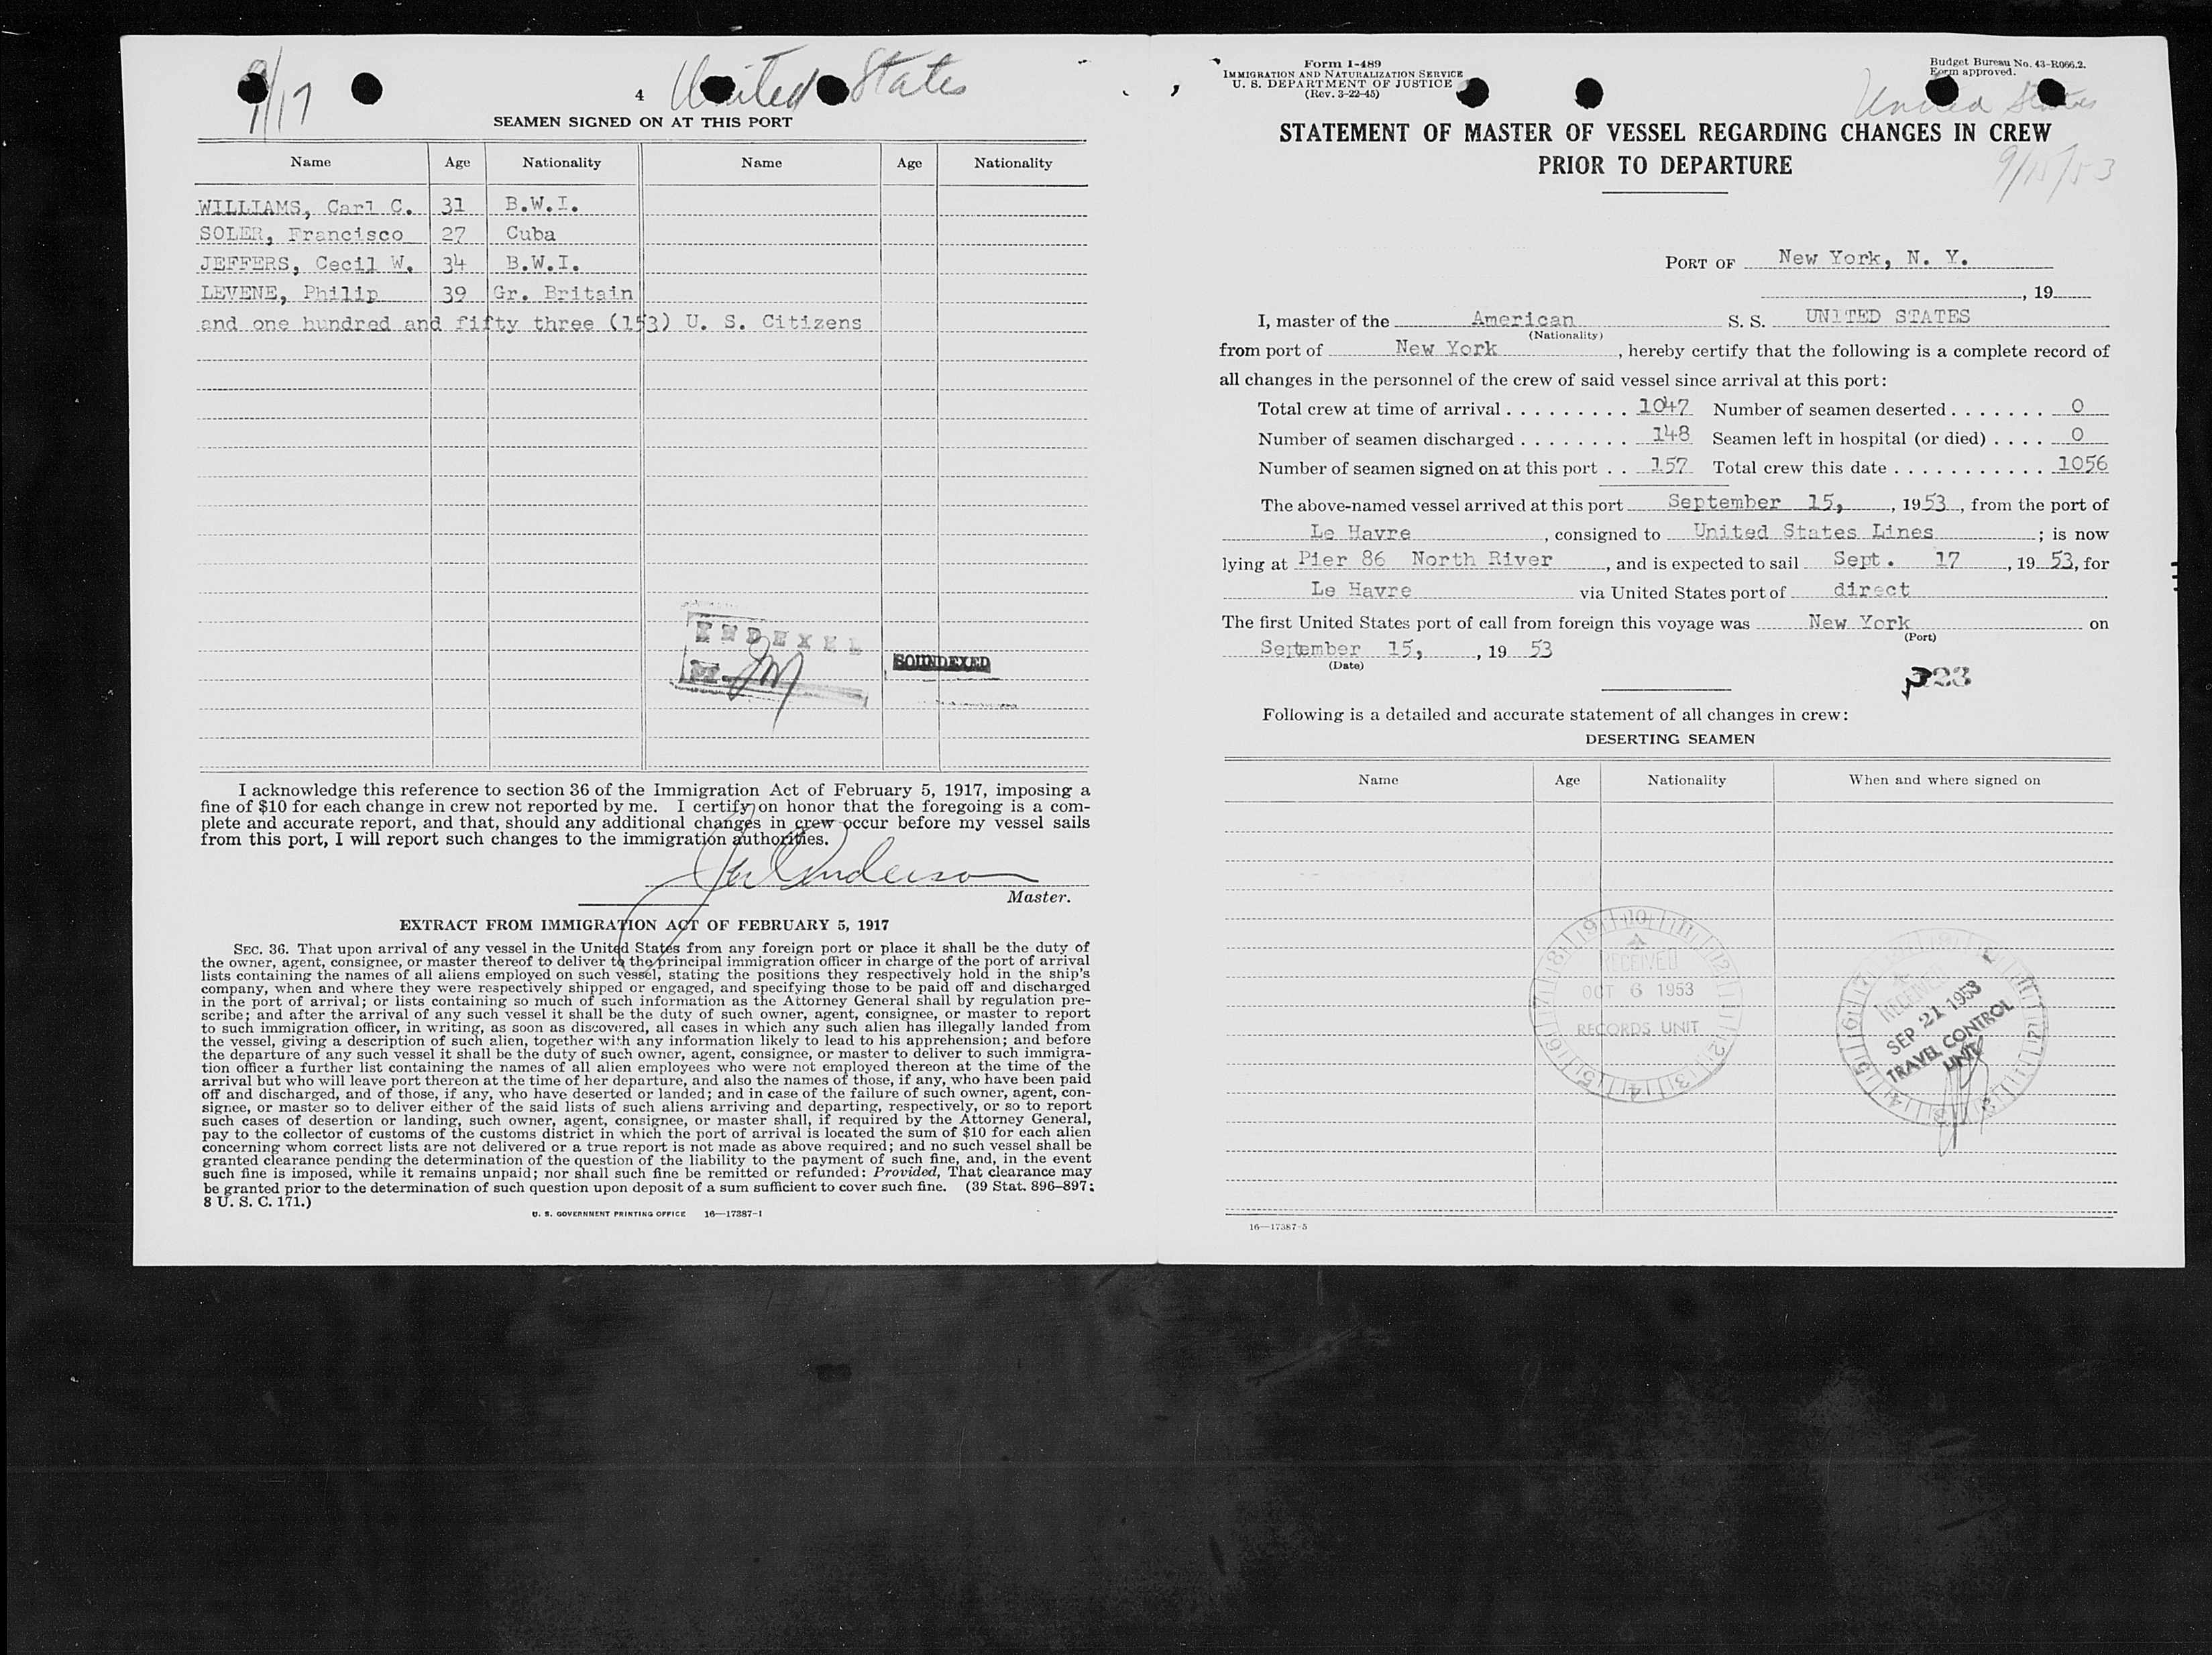 9/17
4 United States
SEAMEN SIGNED ON AT THIS PORT
Name Age Nationality Name Age Nationality
WILLIAMS, Carl C. 31 B.W.I.
SOLER, Francisco 27 Cuba
JEFFERS, Cecil W. 34 B.W.I.
LEVENE, Philip 39 Gr. Britain
and one hundred and fifty three (153) U. S. Citizens
INDEXED
SOUNDEXED
I acknowledge this reference to section 36 of the Immigration Act of February 5, 1917, imposing a
fine of $10 for each change in crew not reported by me. I certify on honor that the foregoing is a com-
plete and accurate report, and that, should any additional changes in crew occur before my vessel sails
from this port, I will report such changes to the immigration authorities.
Anderson
Master.
EXTRACT FROM IMMIGRATION ACT OF FEBRUARY 5, 1917
SEC. 36. That upon arrival of any vessel in the United States from any foreign port or place it shall be the duty of
the owner, agent, consignee, or master thereof to deliver to the principal immigration officer in charge of the port of arrival
lists containing the names of all aliens employed on such vessel, stating the positions they respectively hold in the ship's
company, when and where they were respectively shipped or engaged, and specifying those to be paid off and discharged
in the port of arrival; or lists containing so much of such information as the Attorney General shall by regulation pre-
scribe; and after the arrival of any such vessel it shall be the duty of such owner, agent, consignee, or master to report
to such immigration officer, in writing, as soon as discovered, all cases in which any such alien has illegally landed from
the vessel, giving a description of such alien, together with any information likely to lead to his apprehension; and before
the departure of any such vessel it shall be the duty of such owner, agent, consignee, or master to deliver to such immigra-
tion officer a further list containing the names of all alien employees who were not employed thereon at the time of the
arrival but who will leave port thereon at the time of her departure, and also the names of those, if any, who have been paid
off and discharged, and of those, if any, who have deserted or landed; and in case of the failure of such owner, agent, con-
signee, or master so to deliver either of the said lists of such aliens arriving and departing, respectively, or so to report
such cases of desertion or landing, such owner, agent, consignee, or master shall, if required by the Attorney General,
pay to the collector of customs of the customs district in which the port of arrival is located the sum of $10 for each alien
concerning whom correct lists are not delivered or a true report is not made as above required; and no such vessel shall be
granted clearance pending the determination of the question of the liability to the payment of such fine, and, in the event
such fine is imposed, while it remains unpaid; nor shall such fine be remitted or refunded: Provided, That clearance may
be granted prior to the determination of such question upon deposit of a sum sufficient to cover such fine. (39 Stat. 896–897;
8 U. S. C. 171.)
U. S. GOVERNMENT PRINTING OFFICE 16—17387-1
Form I-489
IMMIGRATION AND NATURALIZATION SERVICE
U. S. DEPARTMENT OF JUSTICE
(Rev. 3-22-45)
Budget Bureau No. 43-R066.2.
Form approved.
United States
STATEMENT OF MASTER OF VESSEL REGARDING CHANGES IN CREW
PRIOR TO DEPARTURE
9/15/53
PORT OF New York, N. Y.
, 19
I, master of the American S. S. UNITED STATES
(Nationality)
from port of New York , hereby certify that the following is a complete record of
all changes in the personnel of the crew of said vessel since arrival at this port:
Total crew at time of arrival . . . . . . . . . 1047 Number of seamen deserted . . . . . . . 0
Number of seamen discharged . . . . . . . . 148 Seamen left in hospital (or died) . . . . 0
Number of seamen signed on at this port . . 157 Total crew this date . . . . . . . . . . . 1056
The above-named vessel arrived at this port September 15, , 1953 , from the port of
Le Havre , consigned to United States Lines ; is now
lying at Pier 86 North River , and is expected to sail Sept. 17 , 19 53, for
Le Havre via United States port of direct
The first United States port of call from foreign this voyage was New York on
(Port)
September 15, , 19 53
(Date)
23
Following is a detailed and accurate statement of all changes in crew:
DESERTING SEAMEN
Name Age Nationality When and where signed on
RECEIVED
OCT 6 1953
RECORDS UNIT
RECEIVED
SEP 21 1953
TRAVEL CONTROL
UNIT
16—17387-5